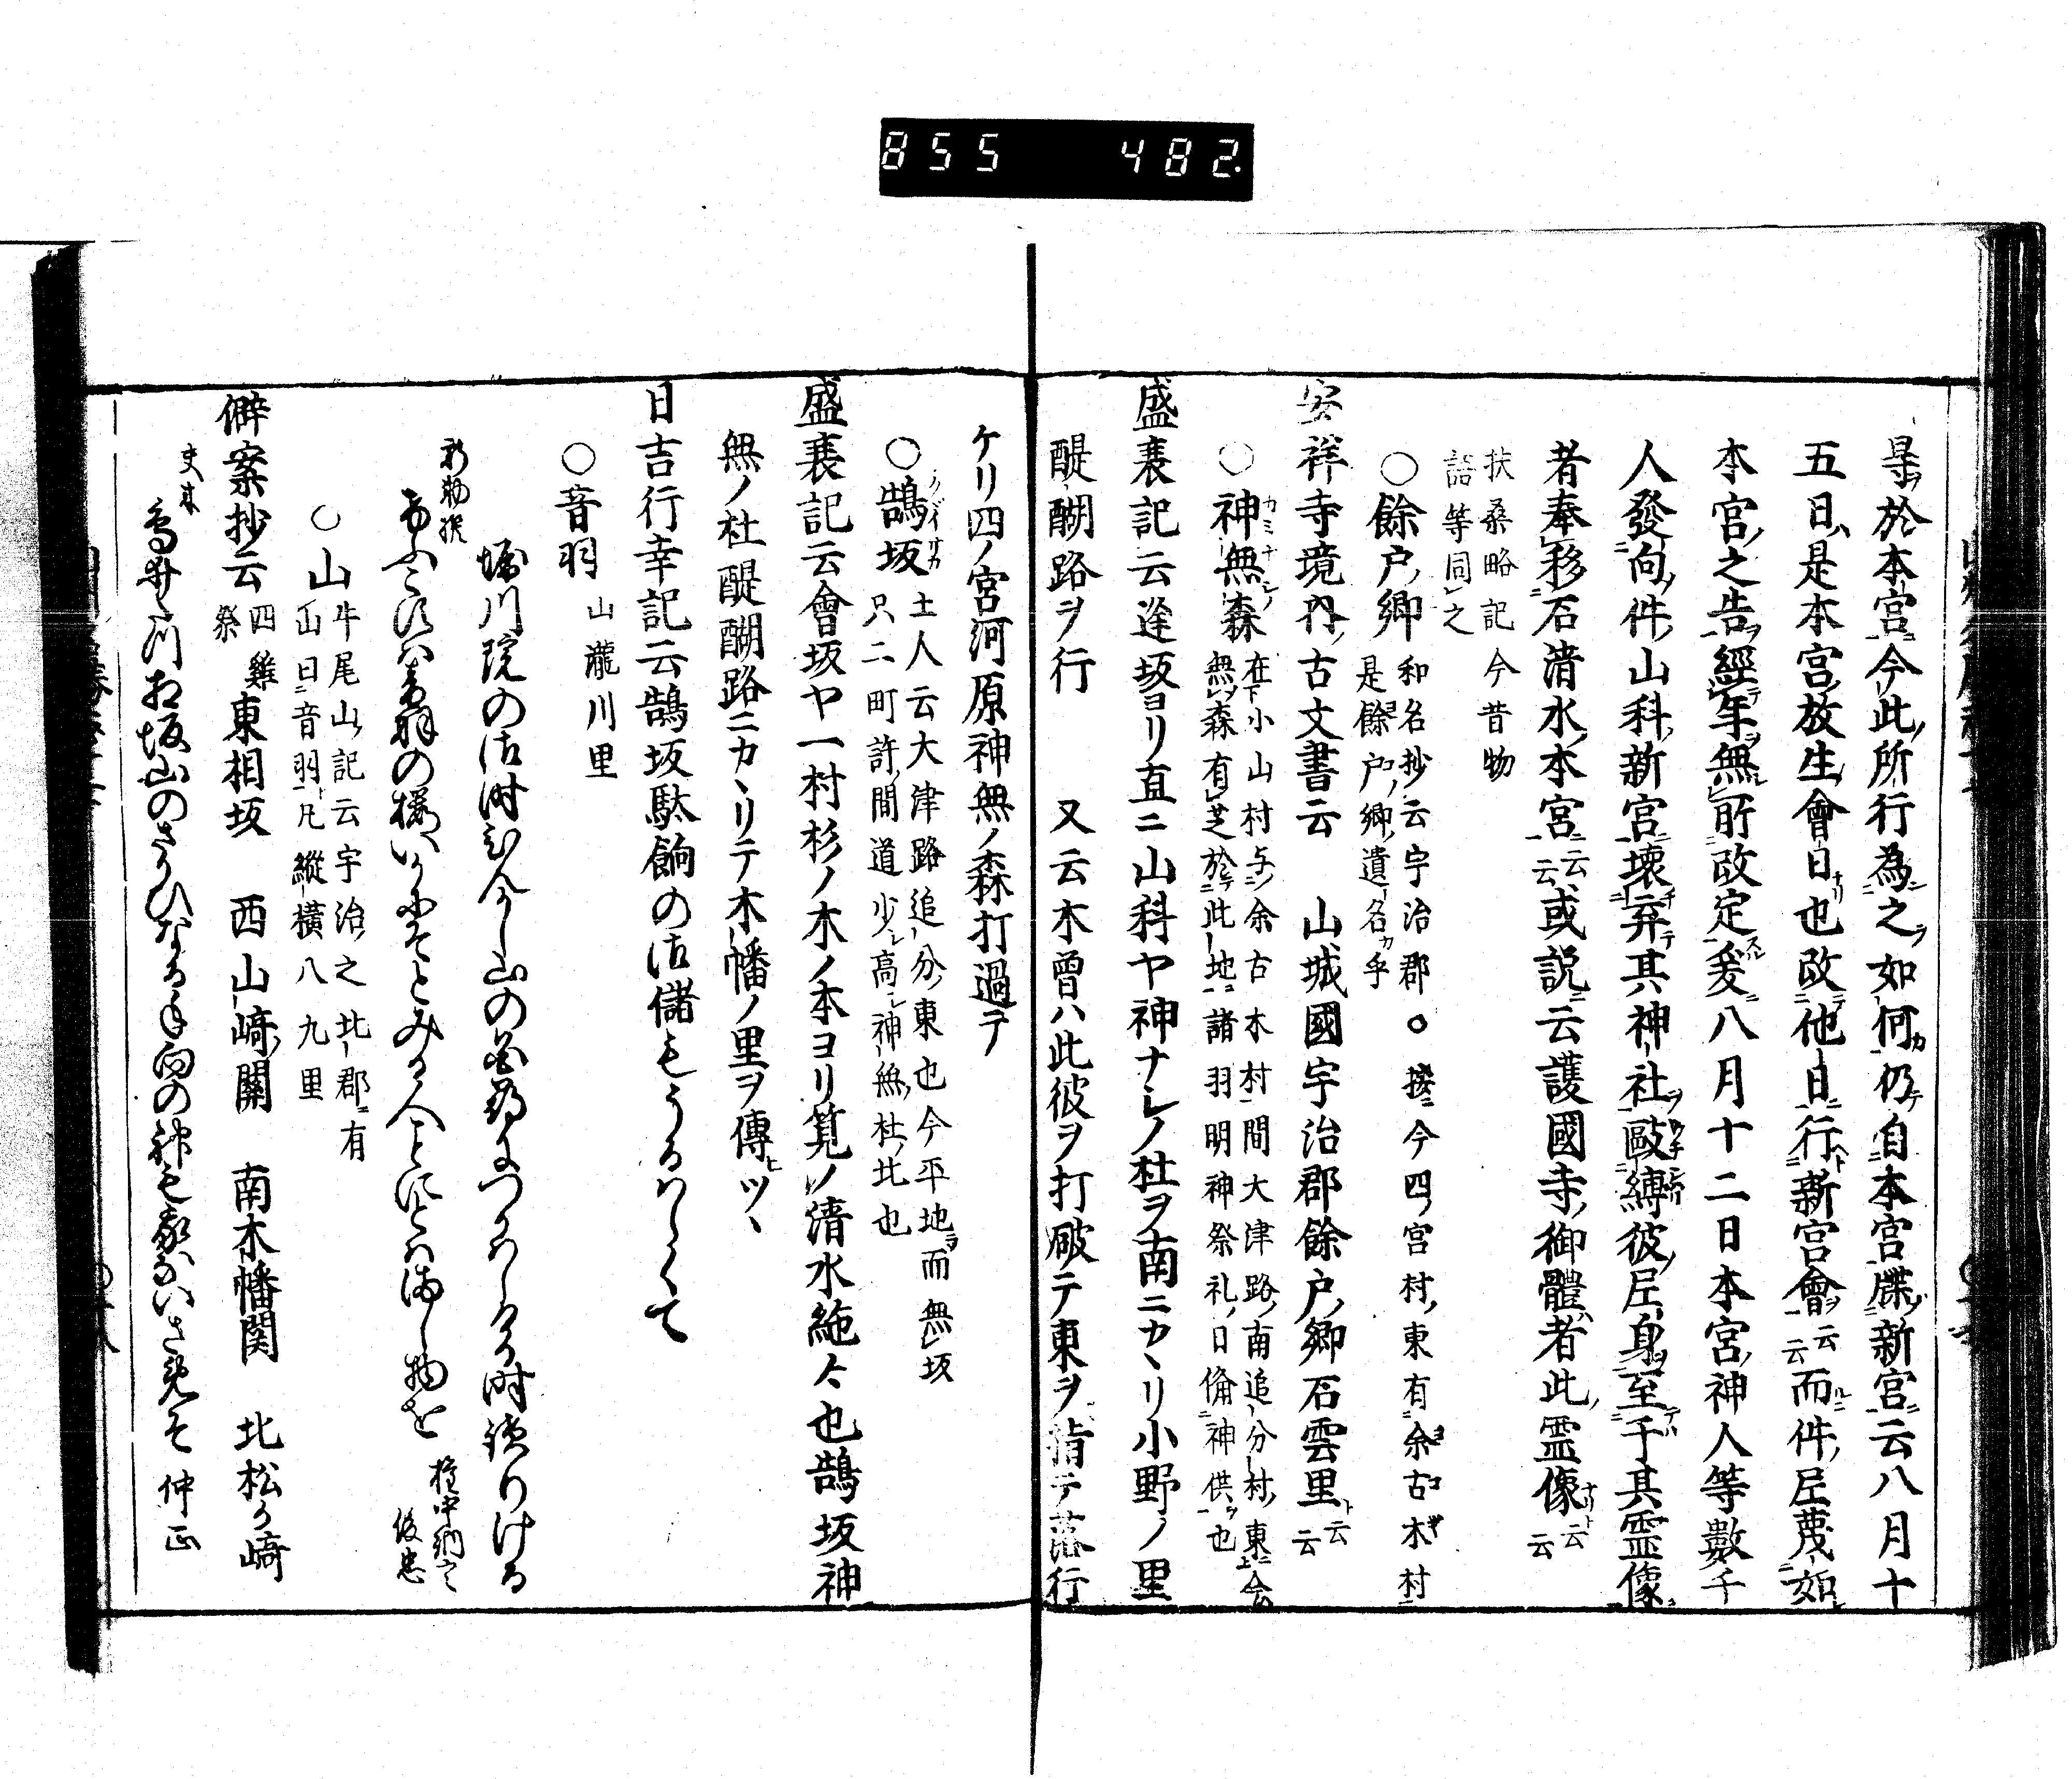 855 482.
是於本宮今此所行為之如何仍自本宮牒新宮云八月十
五日是本宮放生會日也改他日行新宮會云云而件尼蔑如
本宮之告經年無所改定爰八月十二日本宮神人等數千
人發向件山科新宮壊弃其神社敺縛彼尼身至于其霊像
者奉移石清水本宮云云或説云護國寺御體者此霊像云云
扶桑略記今昔物
語等同之
○餘戸郷
和名抄云宇治郡○按今四宮村東有余古木村
是餘戸郷遺名乎
安祥寺境内古文書云 山城國宇治郡餘戸郷石雲里云云
○神無森
在下小山村与余古木村間大津路南追分村東上今
無森有芝於此地諸羽明神祭礼日備神供也
盛衰記云逢坂ヨリ直ニ山科ヤ神ナレノ杜ヲ南ニカヽリ小野ノ里
醍醐路ヲ行 又云木曽ハ此彼ヲ打破テ東ヲ指テ落行
ケリ四ノ宮河原神無ノ森打過テ
○鵠坂
土人云大津路追分東也今平地而無坂
只二町許間道少高神無杜北也
盛衰記云會坂ヤ一村杉ノ木ノ本ヨリ筧ノ清水絶々也鵠坂神
無ノ杜醍醐路ニカヽリテ木幡ノ里ヲ傳ヒツヽ
日吉行幸記云鵠坂駄餉の御儲もうるはしくて
○音羽 山瀧川里
堀川院の御時
新物撰
音羽の
人
物を
権中納言
俊忠
○山
牛尾山記云宇治之北郡有
山曰音羽凡縱横八九里
僻案抄云四雞祭東相坂 西山﨑關 南木幡関 北松か﨑
夫木
川相坂山のさかひなる手向の神も
仲正